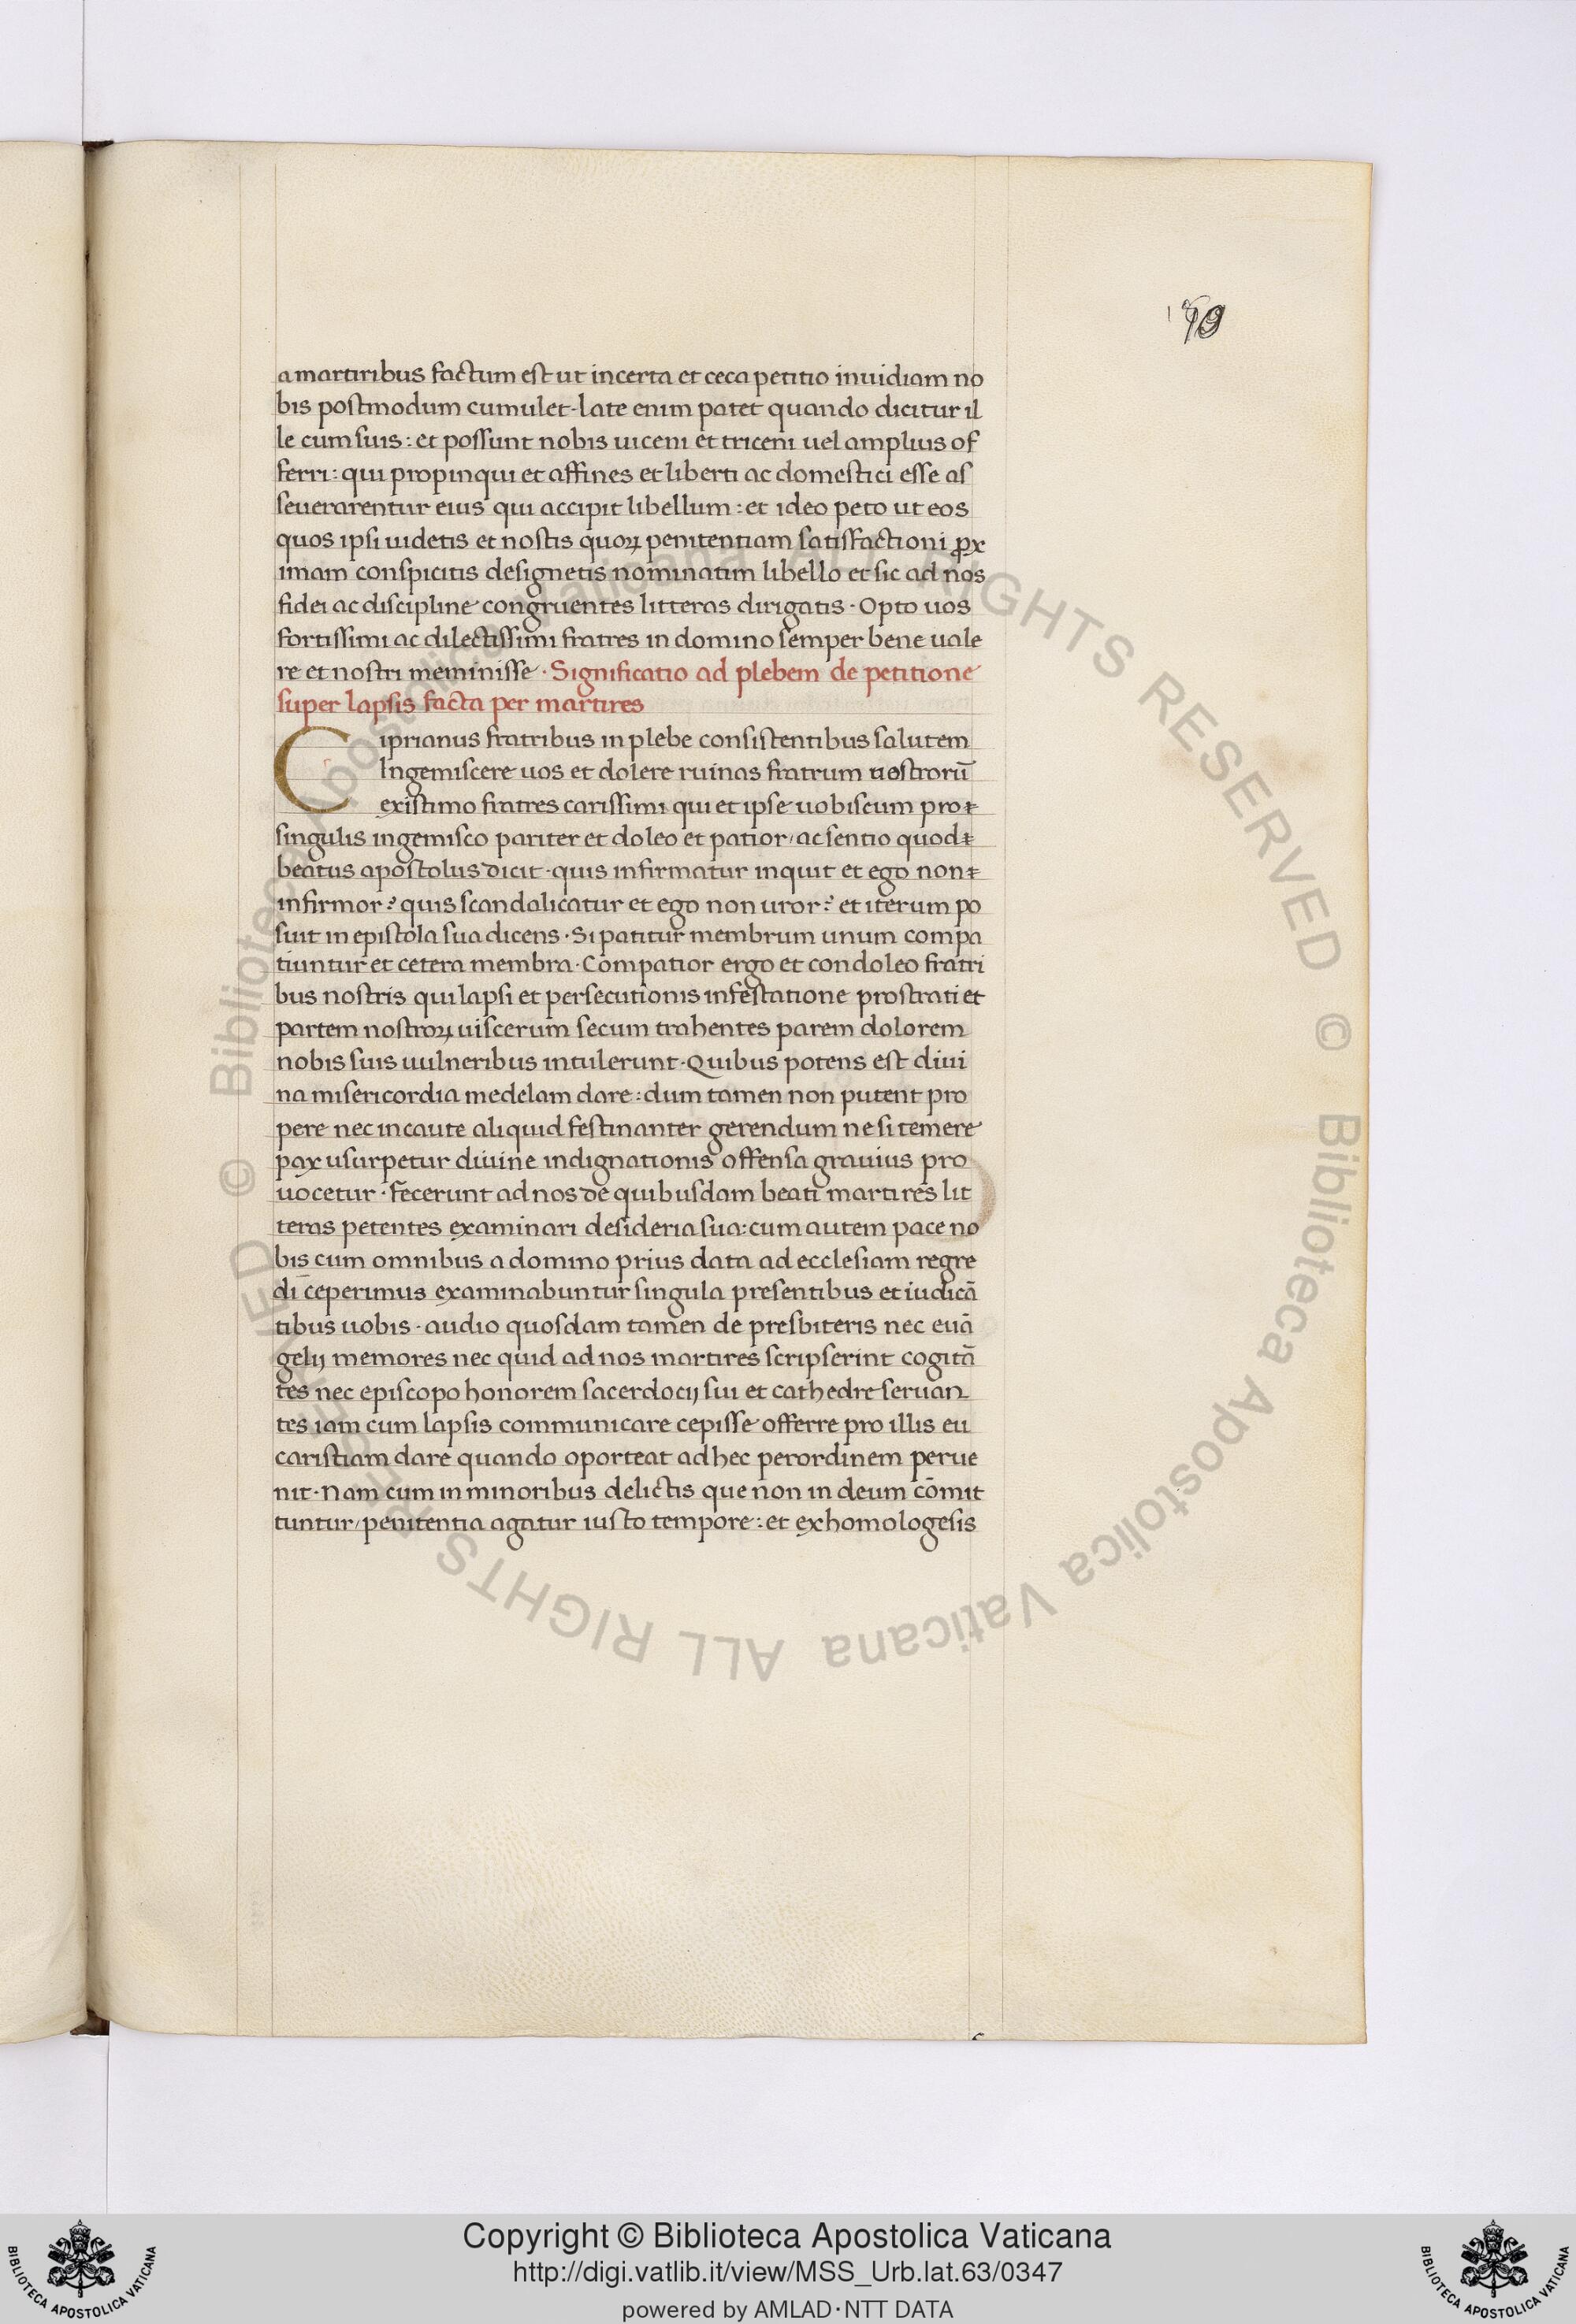 159
a martiribus factum est ut incerta et ceca petitio inuidiam no
bis postmodum cumulet · late enim patet quando dicitur il
le cum suis : et possunt nobis uiceni et triceni uel amplius of
ferri : qui propinqui et affines et liberti ac domestici esse as
seuerarentur eius qui accipit libellum : et ideo peto ut eos
quos ipsi uidetis et nostis quoꝝ penitentiam satisfactioni ꝓx
imam conspicitis designetis nominatim libello et sic ad nos
fidei ac discipline congruentes litteras dirigatis · Opto uos
fortissimi ac dilectissimi fratres in domino semper bene uale
re et nostri meminisse · Significatio ad plebem de petitione
super lapsis facta per martires
Ciprianus fratribus in plebe consistentibus salutem
Ingemiscere uos et dolere ruinas fratrum nostrorū
existimo fratres carissimi qui et ipse uobiscum pro
singulis ingemisco pariter et doleo et patior / ac sentio quod
beatus apostolus dicit · quis infirmatur inquit et ego non
infirmor ? quis scandalicatur et ego non uror ? et iterum po
suit in epistola sua dicens · Si patitur membrum unum compa
tiuntur et cetera membra · Compatior ergo et condoleo fratri
bus nostris qui lapsi et persecutionis infestatione prostrati et
partem nostroꝝ uiscerum secum trahentes parem dolorem
nobis suis uulneribus intulerunt · Quibus potens est diui
na misericordia medelam dare : dum tamen non putent pro
pere nec incaute aliquid festinanter gerendum ne si temere
pax usurpetur diuine indignationis offensa grauius pro
uocetur · fecerunt ad nos de quibusdam beati martires lit
teras petentes examinari desideria sua : cum autem pace no
bis cum omnibus a domino prius data ad ecclesiam regre
di ceperimus examinabuntur singula presentibus et iudicā
tibus uobis · audio quosdam tamen de presbiteris nec euā
gelij memores nec quid ad nos martires scripserint cogitā
tes nec episcopo honorem sacerdocij sui et cathedre seruan
tes iam cum lapsis communicare cepisse offerre pro illis eu
caristiam dare quando oporteat ad hec per ordinem perue
nit · Nam cum in minoribus delictis que non in deum cōmit
tuntur / penitentia agatur iusto tempore : et exhomologesis
© Biblioteca Apostolica Vaticana ALL RIGHTS RESERVED © Biblioteca Apostolica Vaticana ALL RIGHTS RESERVED
BIBLIOTECA APOSTOLICA VATICANA
Copyright © Biblioteca Apostolica Vaticana
http://digi.vatlib.it/view/MSS_Urb.lat.63/0347
powered by AMLAD·NTT DATA
BIBLIOTECA APOSTOLICA VATICANA